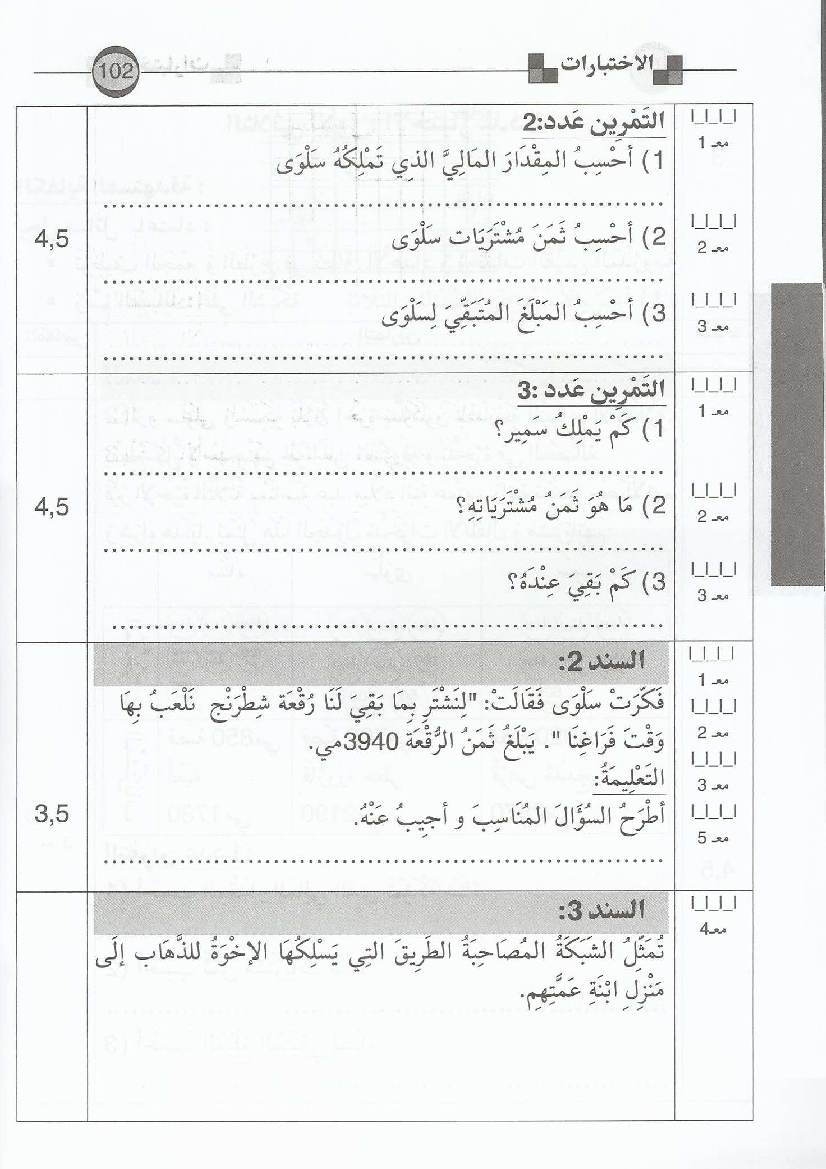 الاختبارات
102
التَمْرِين عَدد:2
1) أحْسِبُ المِقْدَارَ المَالِيَّ الذِي تَمْلِكُهُ سَلْوَى
2) أحْسِبُ ثَمَنَ مُشْتَرَيَات سَلْوَى
3) أحْسِبُ المَبْلَغَ المُتَبَقِّيَ لِسَلْوَى
4,5
مع 1
مع 2
مع 3
التَمْرِين عَدد :3
1) كَمْ يَمْلِكُ سَمِير؟
2) مَا هُوَ ثَمَنُ مُشْتَرَيَاتِهِ؟
3) كَمْ بَقِيَ عِنْدَهُ؟
4,5
مع 1
مع 2
مع 3
السند 2:
فَكَّرَتْ سَلْوَى فَقَالَتْ: "لِنَشْتَرِ بِمَا بَقِيَ لَنَا رُقْعَة شِطْرَنْج نَلْعَبُ بِهَا
وَقْتَ فَرَاغِنَا ". يَبْلَغُ ثَمَنُ الرُّقْعَة 3940مي.
التَعْلِيمَةُ:
أطْرَحُ السُؤَالَ المُنَاسِبَ و أجِيبُ عَنْهُ.
3,5
مع 1
مع 2
مع 3
مع 5
السند 3:
تُمَثِّلُ الشَبَكَةُ المُصَاحِبَةُ الطَرِيقَ التِي يَسْلِكُهَا الإخْوَةُ للذَّهَاب إلَى
مَنْزِلِ ابْنَةِ عَمَّتِهِم.
مع4